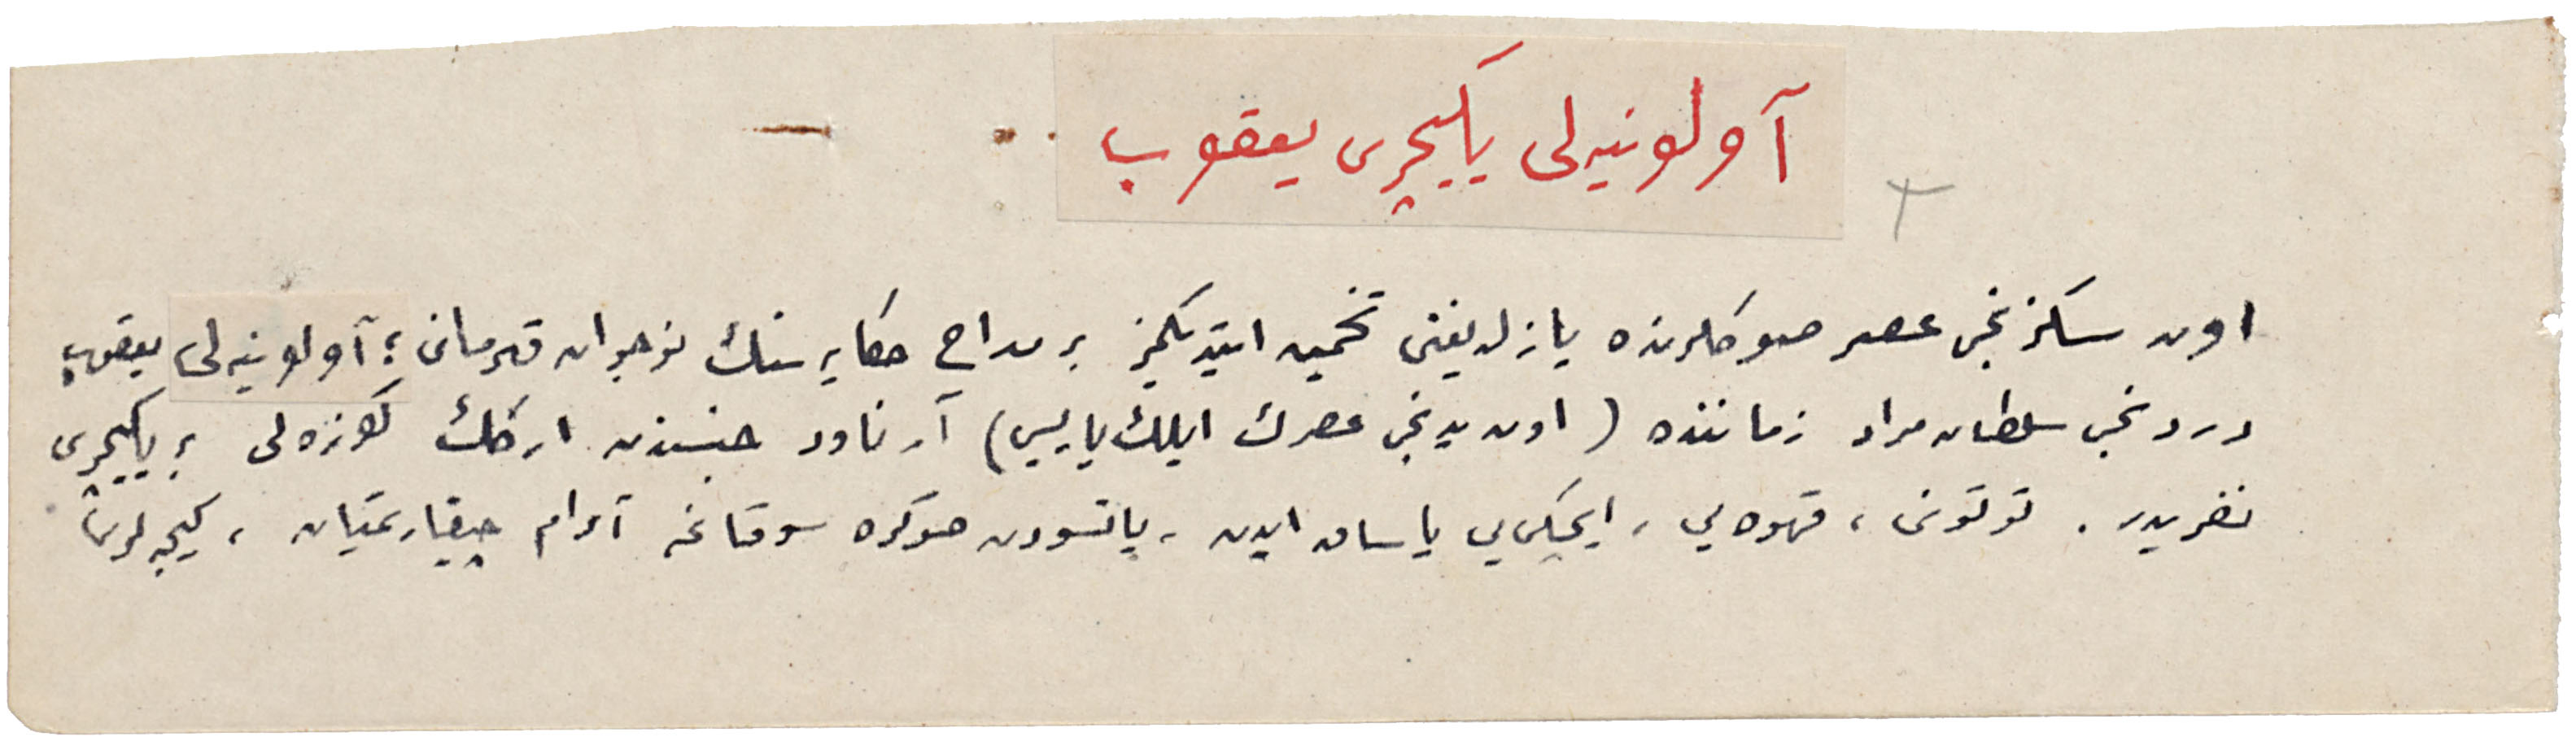 آولونیه‌لی یکیچری یعقوب
اون سکزنجی عصر صوکلرنده یازلدیغنی تخمین ایتدیکمز بر مداح حکایه سنك نوجوان قهرمانی ؛ آولونیه‌لی یعقوب
دردنجی سلطان مراد زماننده (اون یدنجی عصرك ایلك یاریسی) آرناود جنسندن ارکك کوزه‌لی بر یکیچری
نفریدر . توتونی ، قهوه‌یی ، ایچکی‌یی یاساق ایدن ، یاتسودن صوکره سوقاغه آدام چیقارتمیان ، کیجه‌لری